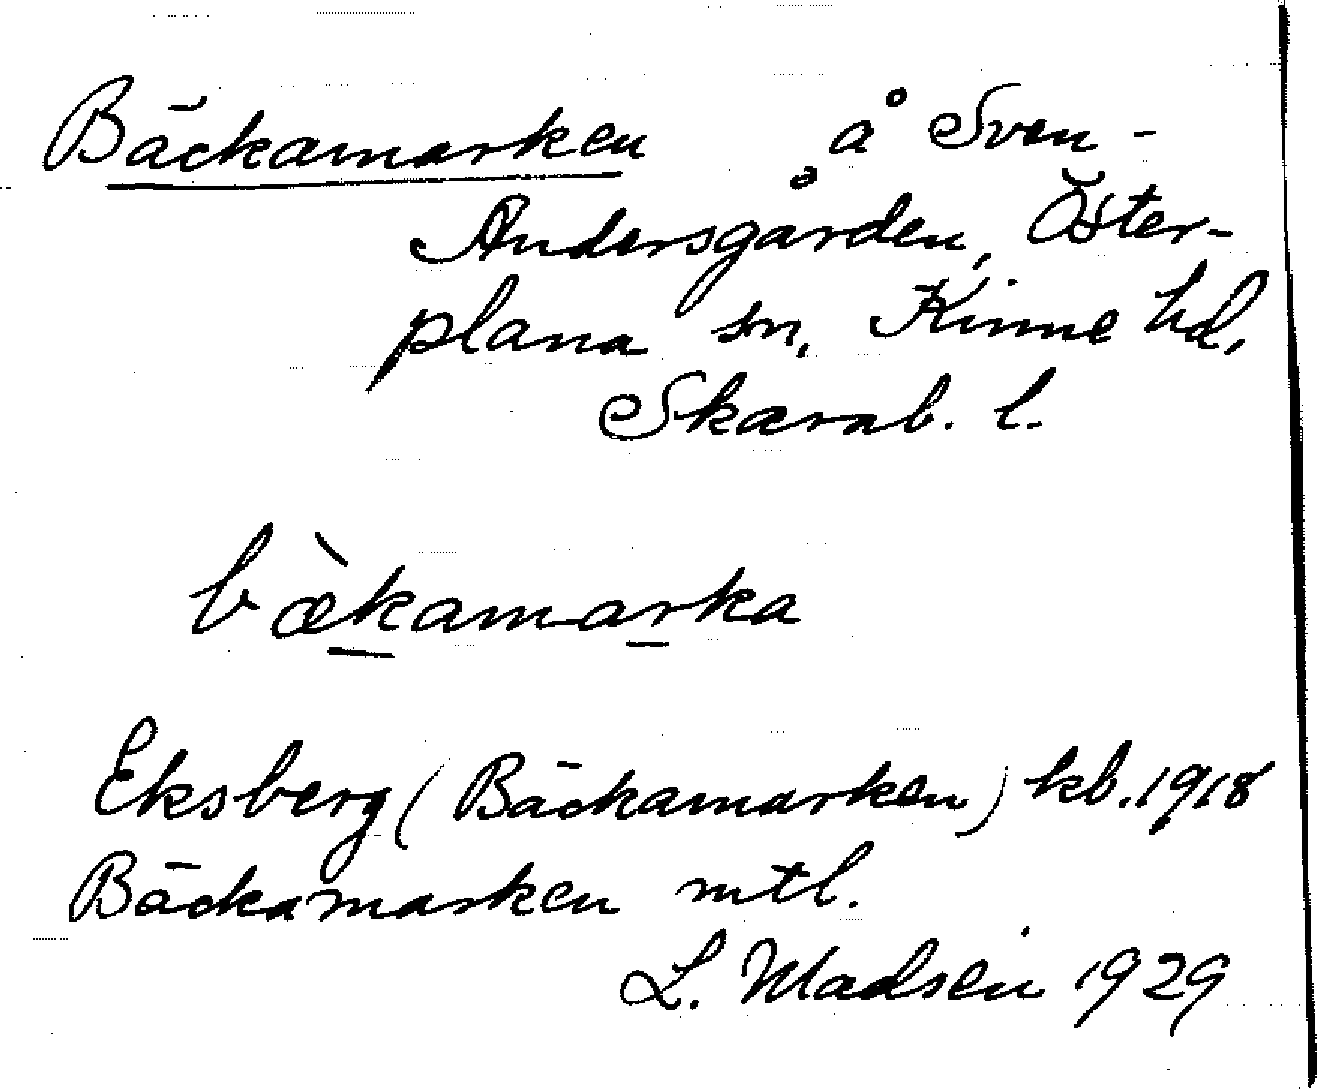 Bäckamarken å Sven-
Andersgården, Öster-
plana sn, Kinne hd,
Skarab. l.
bæ̀kamarka
Eksberg (Bäckamarken) kb. 1918
Bäckamarken mtl.
L. Madsén 1929